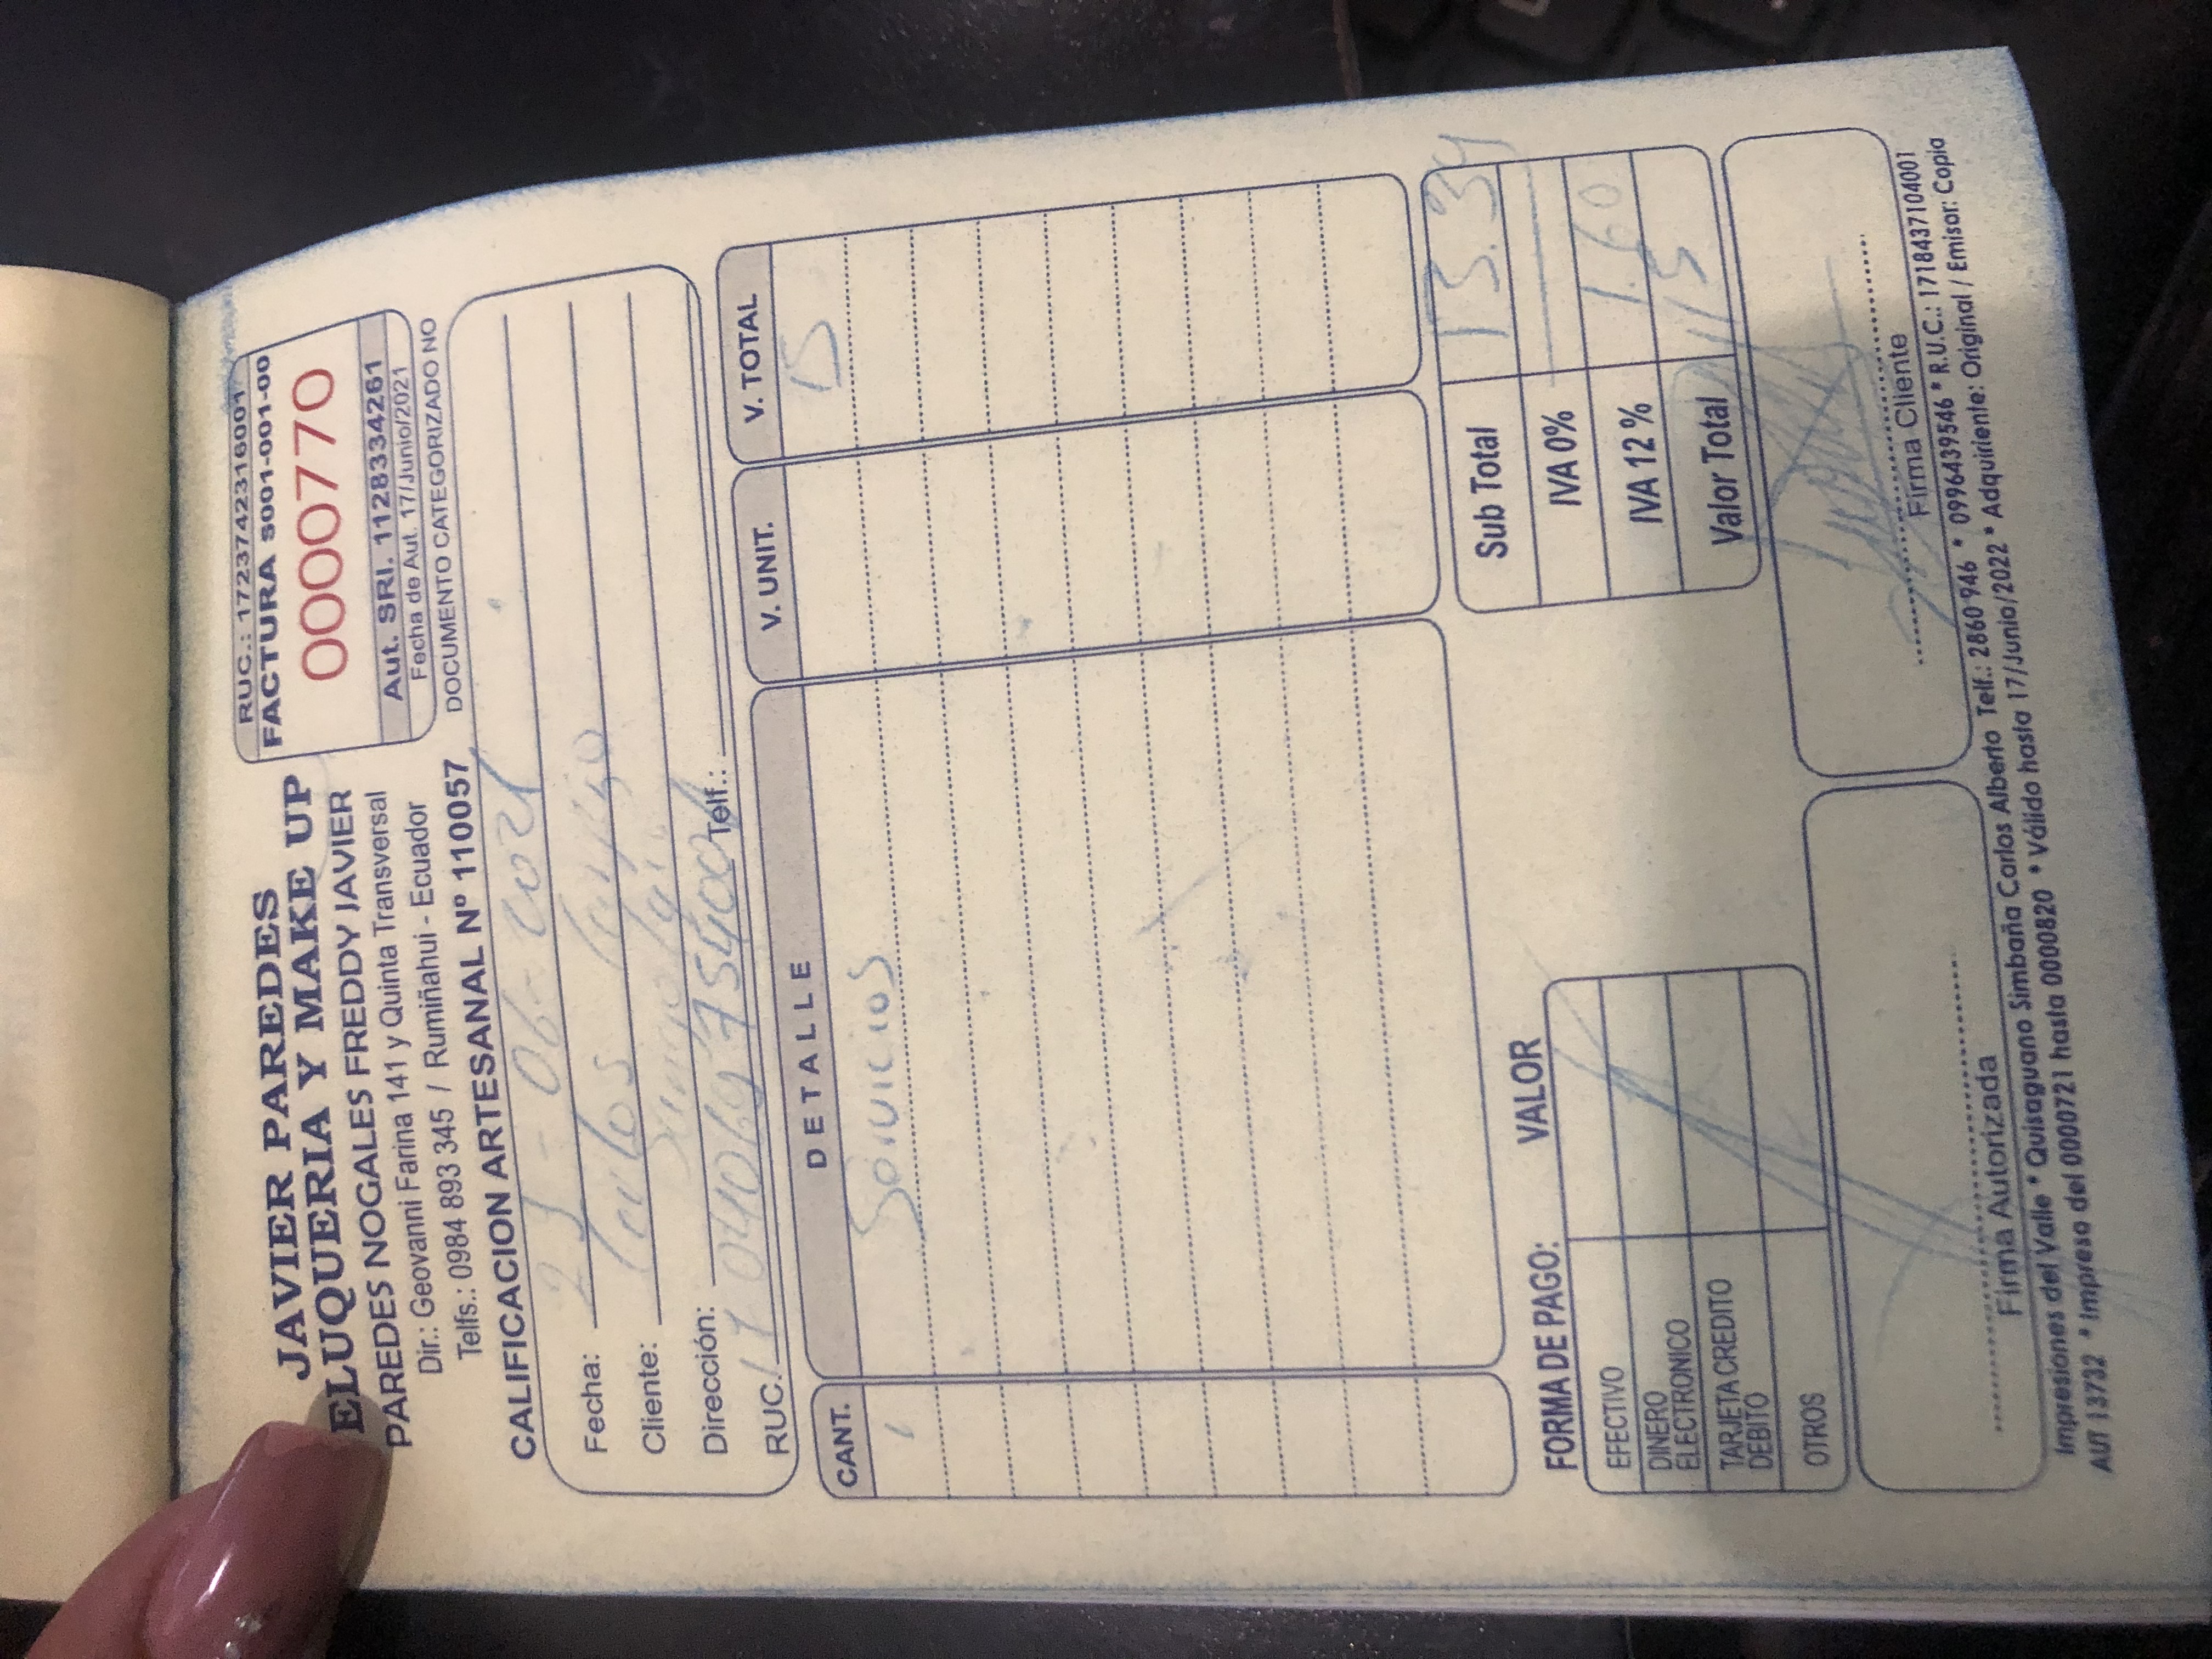 JAVIER PAREDES
ELUQUERIA Y MAKE UP
PAREDES NOGALES FREDDY JAVIER
Dir.: Geovanni Farina 141 y Quinta Transversal
Telfs.: 0984 893 345 / Rumiñahui - Ecuador
CALIFICACION ARTESANAL Nº 110057
RUC.: 1723742316001
FACTURA S001-001-00
0000770
Aut. SRI. 1128334261
Fecha de Aut. 17/Junio/2021
DOCUMENTO CATEGORIZADO NO
Fecha: 23-06-2021
Cliente: Carlos
Dirección: Sangolqui
RUC. Telf.:
CANT. DETALLE V. UNIT. V. TOTAL
1 Servicios 15
Sub Total 13.39
IVA 0%
IVA 12% 1.60
Valor Total 15
FORMA DE PAGO: VALOR
EFECTIVO
DINERO
ELECTRONICO
TARJETA CREDITO
DEBITO
OTROS
Firma Autorizada
Firma Cliente
Impresiones del Valle * Quisaguano Simbaña Carlos Alberto Telf.: 2860 946 * 0996439546 * R.U.C.: 1718437104001
AUT 13732 * Impreso del 0000721 hasta 0000820 * Válido hasta 17/Junio/2022 * Adquiriente: Original / Emisor: Copia